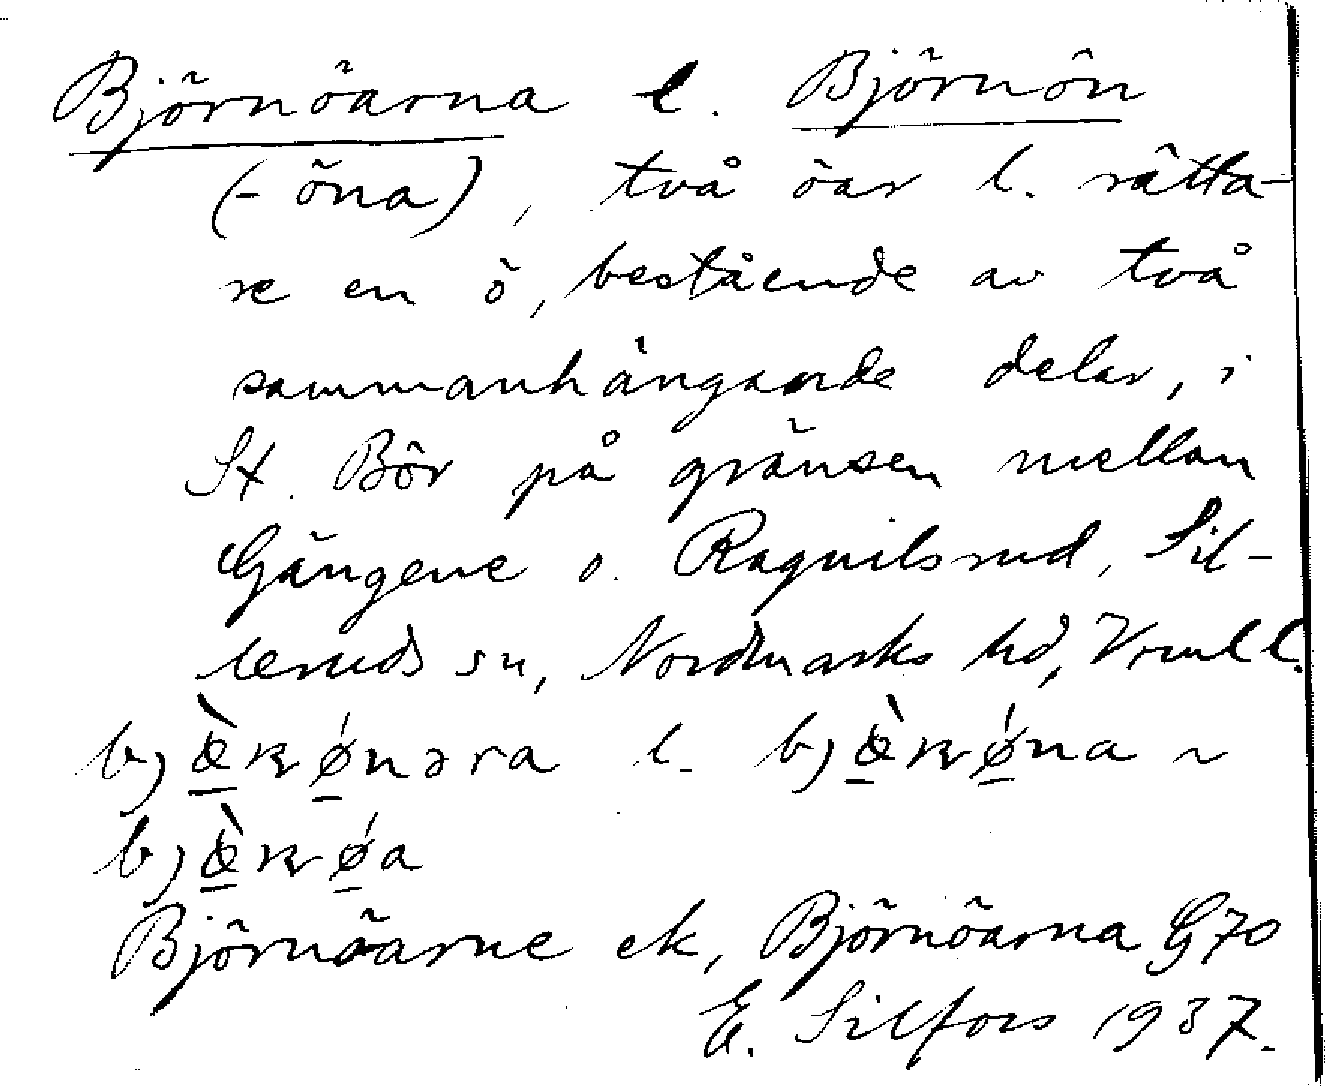 Björnöarna l. Björnön
(-öna), två öar l. rätta-
re en ö, bestående av två
sammanhängande delar, i
St. Bör på gränsen mellan
Gängene o. Ragnilsrud, Sil-
leruds sn, Nordmarks hd, Vrml l.
l. ~
Björnöarne ek, Björnöarna G70
E. Silfors 1937.